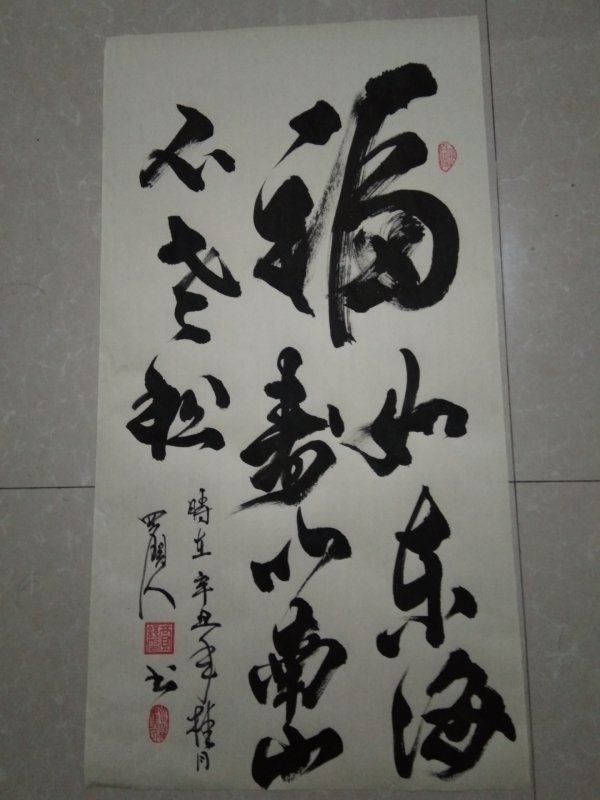 福如东海
寿比南山
不老松
時在辛丑年桂月
人书